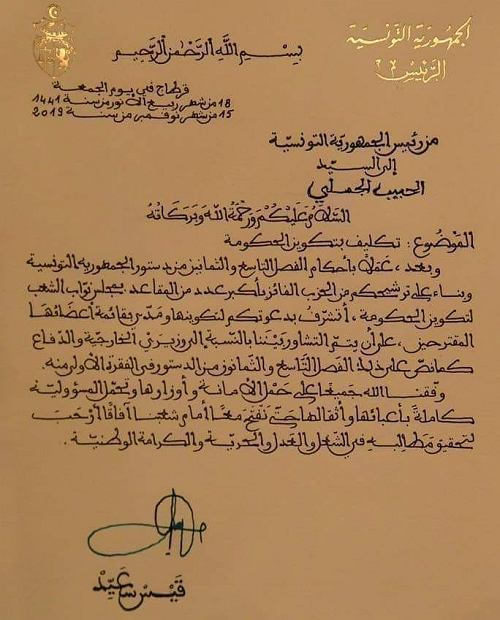 الجمهورية التونسية
الرئيس
بسم الله الرحمن الرحيم
قرطاج في يوم الجمعة
18 من شهر ربيع الأنور من سنة 1441
15 من شهر نوفمبر من سنة 2019
من رئيس الجمهورية التونسية
إلى السيد
الحبيب الجملي
السَّلاَمُ عَلَيْكُمْ وَرَحْمَةُ اللَّهِ وَبَرَكَاتُهُ
الموضوع : تكليف بتكوين الحكومة
وبعد، عملا بأحكام الفصل التاسع والثمانين من دستور الجمهورية التونسية
وبناء على ترشيحكم من الحزب الفائز بأكبر عدد من المقاعد بمجلس نواب الشعب
لتكوين الحكومة، أتشرف بدعوتكم لتكوينها ومدي بقائمة أعضائها
المقترحين، على أن يتم التشاور بيننا بالنسبة إلى وزيري الخارجية والدفاع
كما نص على ذلك الفصل التاسع والثمانون من الدستور في الفقرة الأولى منه.
وفقنا الله جميعا على حمل الأمانة وأوزارها وتحمل المسؤولية
كاملة بأعبائها وأثقالها حتى نفتح معا أمام شعبنا آفاقا أرحب
لتحقيق مطالبه في الشغل والعدل والحرية والكرامة الوطنية.
قيس سعيد